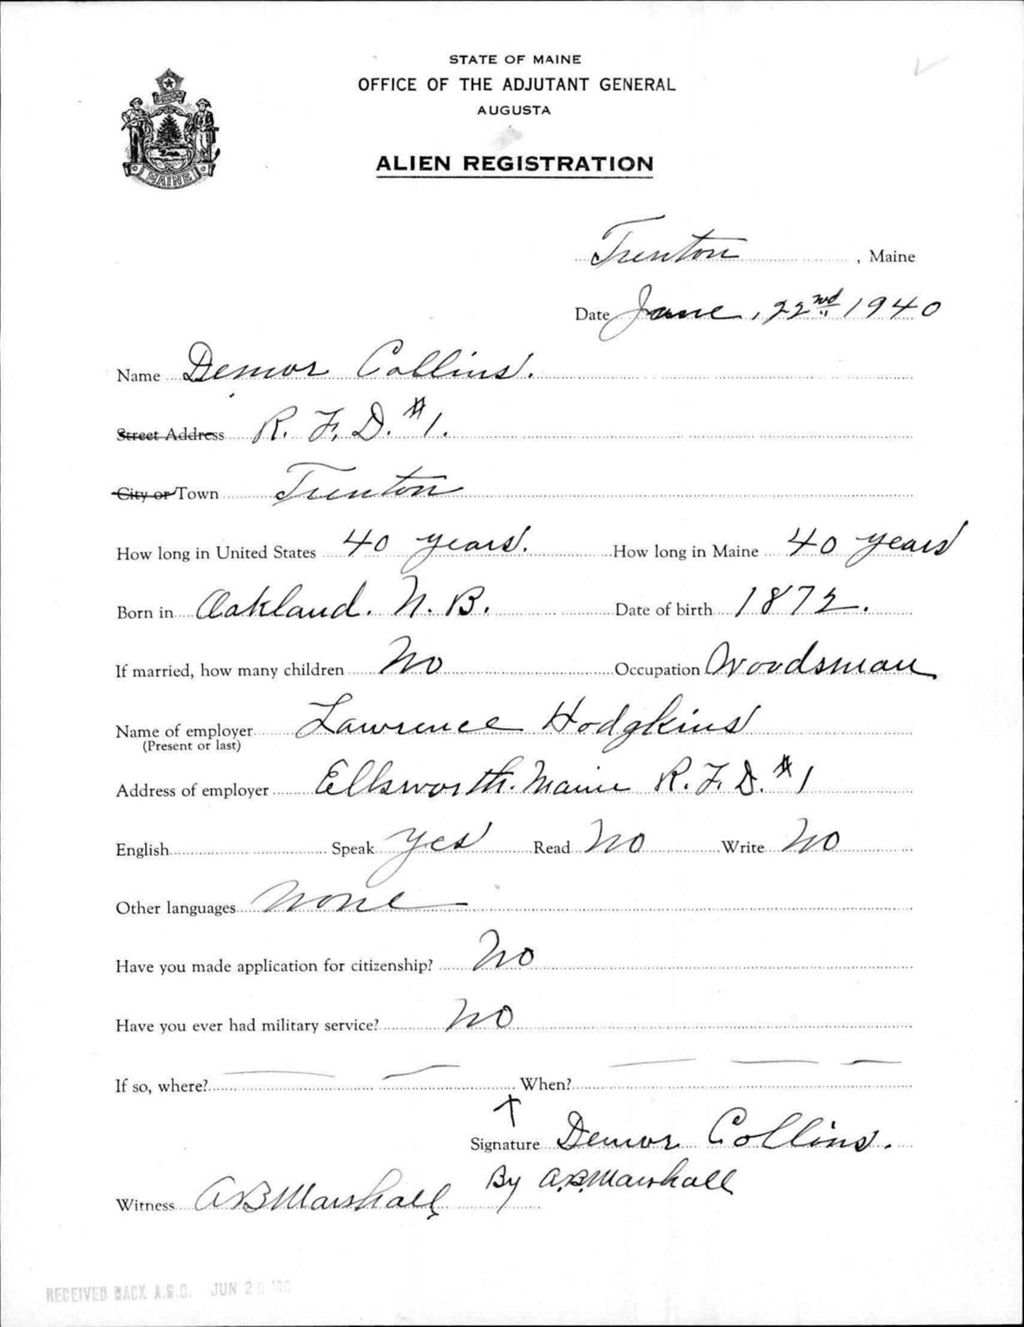 STATE OF MAINE
OFFICE OF THE ADJUTANT GENERAL
AUGUSTA
ALIEN REGISTRATION
MAINE
Trenton, Maine
Date June, 22nd 1940
Name Demor Collins.
Street Address R. F. D. #1.
City or Town Trenton
How long in United States 40 years. How long in Maine 40 years
Born in Oakland. N. B. Date of birth 1872.
If married, how many children No Occupation Woodsman
Name of employer Lawrence Hodgkins
(Present or last)
Address of employer Ellsworth. Maine R. F. D. #1
English Speak yes Read No Write No
Other languages None
Have you made application for citizenship? No
Have you ever had military service? No
If so, where? — — When? — — —
X
Signature Demor Collins.
By A.B. Marshall
Witness A B Marshall
RECEIVED BACK A.G.O. JUN 26